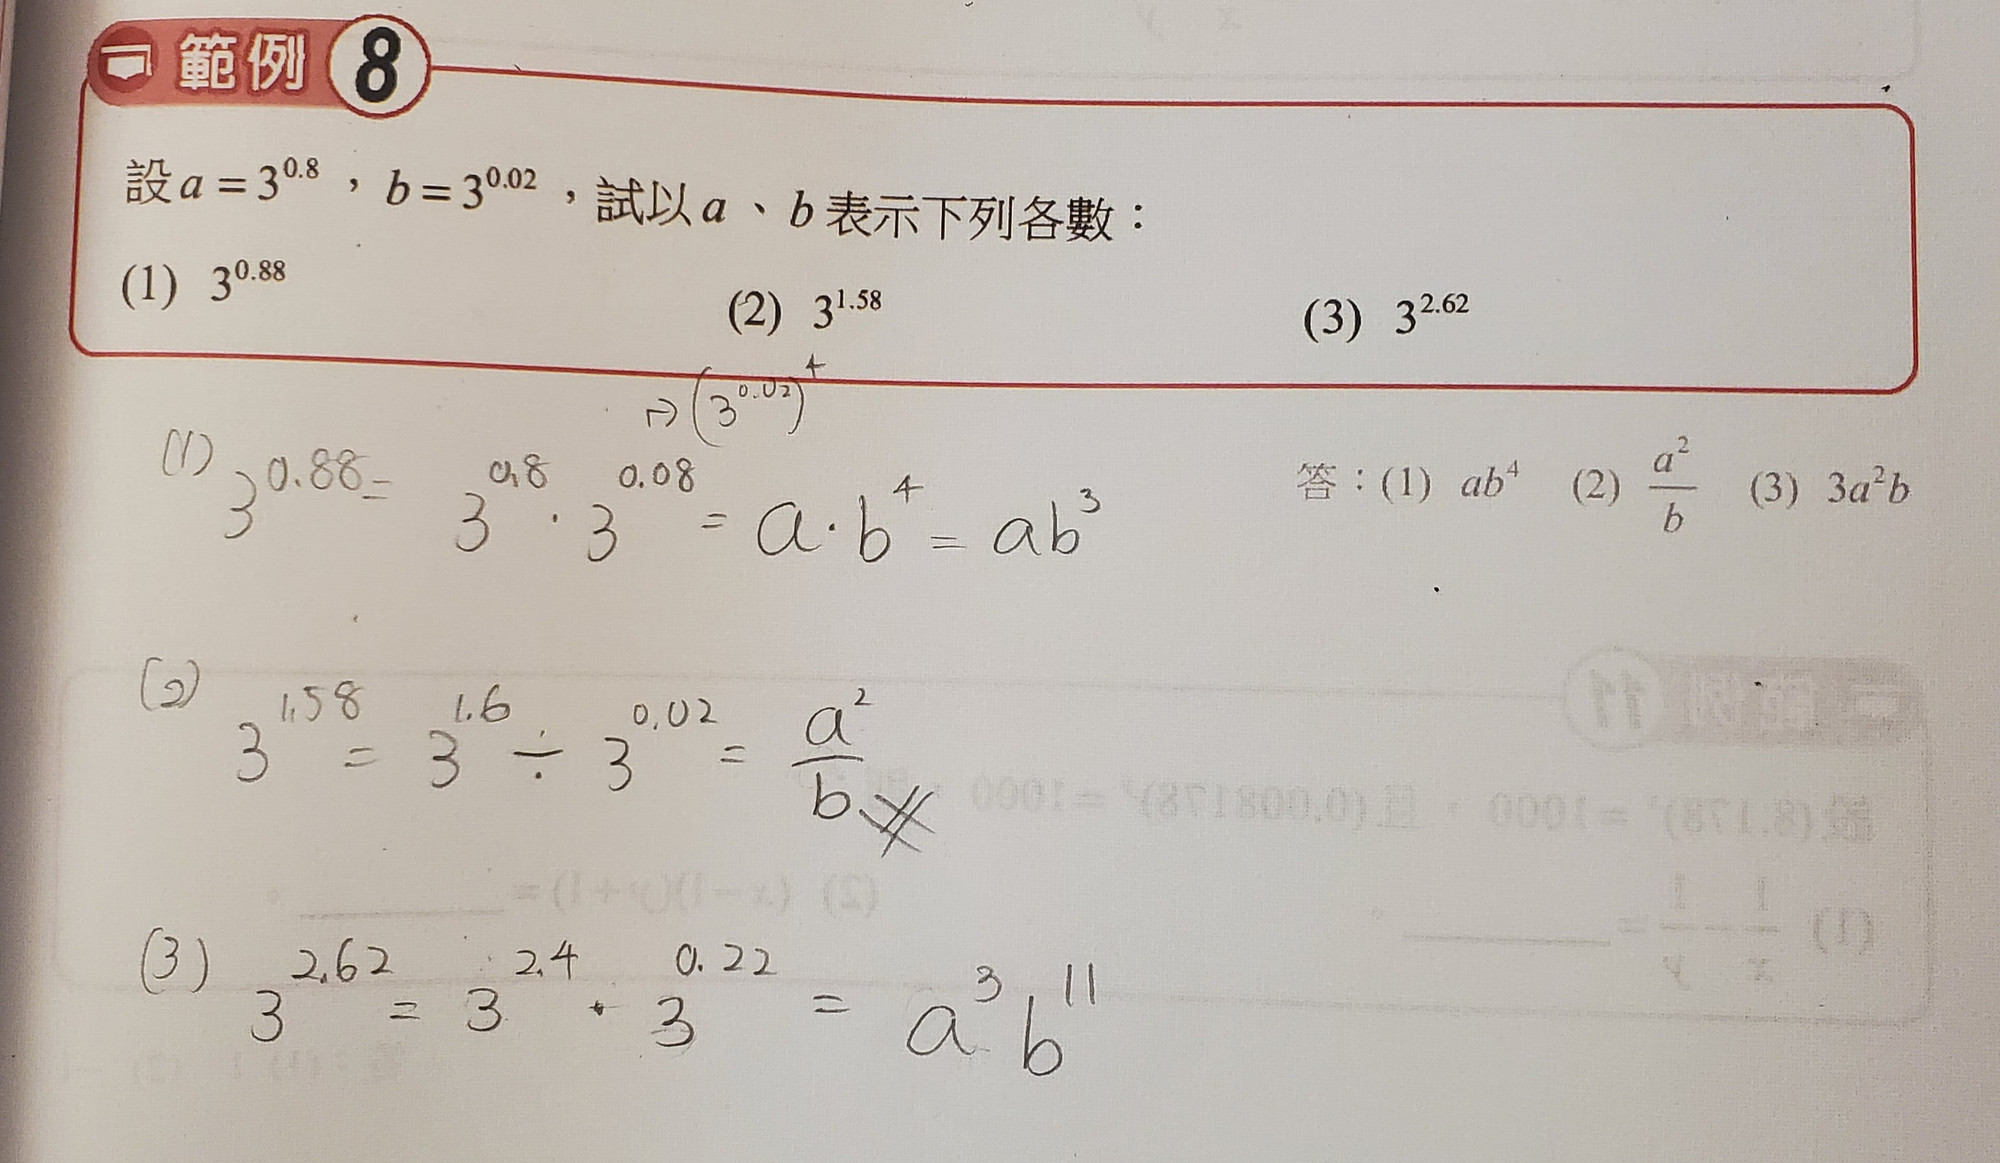 範例 8
設 a = 3^0.8 ， b = 3^0.02 ，試以 a 、 b 表示下列各數：
(1) 3^0.88 (2) 3^1.58 (3) 3^2.62
→ (3^0.02)^4
(1) 3^0.88 = 3^0.8 · 3^0.08 = a · b^4 = ab^3
答：(1) ab^4 (2) a^2/b (3) 3a^2b
(2) 3^1.58 = 3^1.6 ÷ 3^0.02 = a^2/b
(3) 3^2.62 = 3^2.4 · 3^0.22 = a^3 b^11